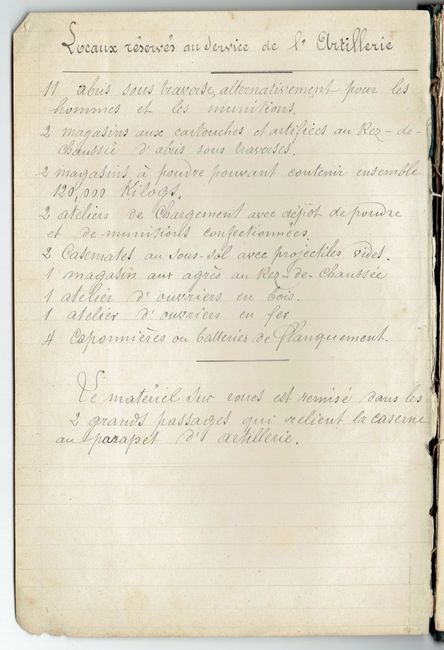 Locaux réservés au Service de l'Artillerie
11 abris sous traverse, alternativement pour les
hommes et les munitions.
2 magasins aux cartouches et artifices au Rez-de-
Chaussée d'abris sous traverses.
2 magasins à poudre pouvant contenir ensemble
120,000 Kilogs.
2 ateliers de Chargement avec dépôt de poudre
et de munitions confectionnées.
2 Casemates au sous-sol avec projectiles vides.
1 magasin aux agrès au Rez-de-Chaussée
1 atelier d'ouvriers en bois.
1 atelier d'ouvriers en fer
4 Caponnières ou batteries de flanquement.
Le matériel sur roues est remisé dans les
2 grands passages qui relient la caserne
au parapet d'artillerie.